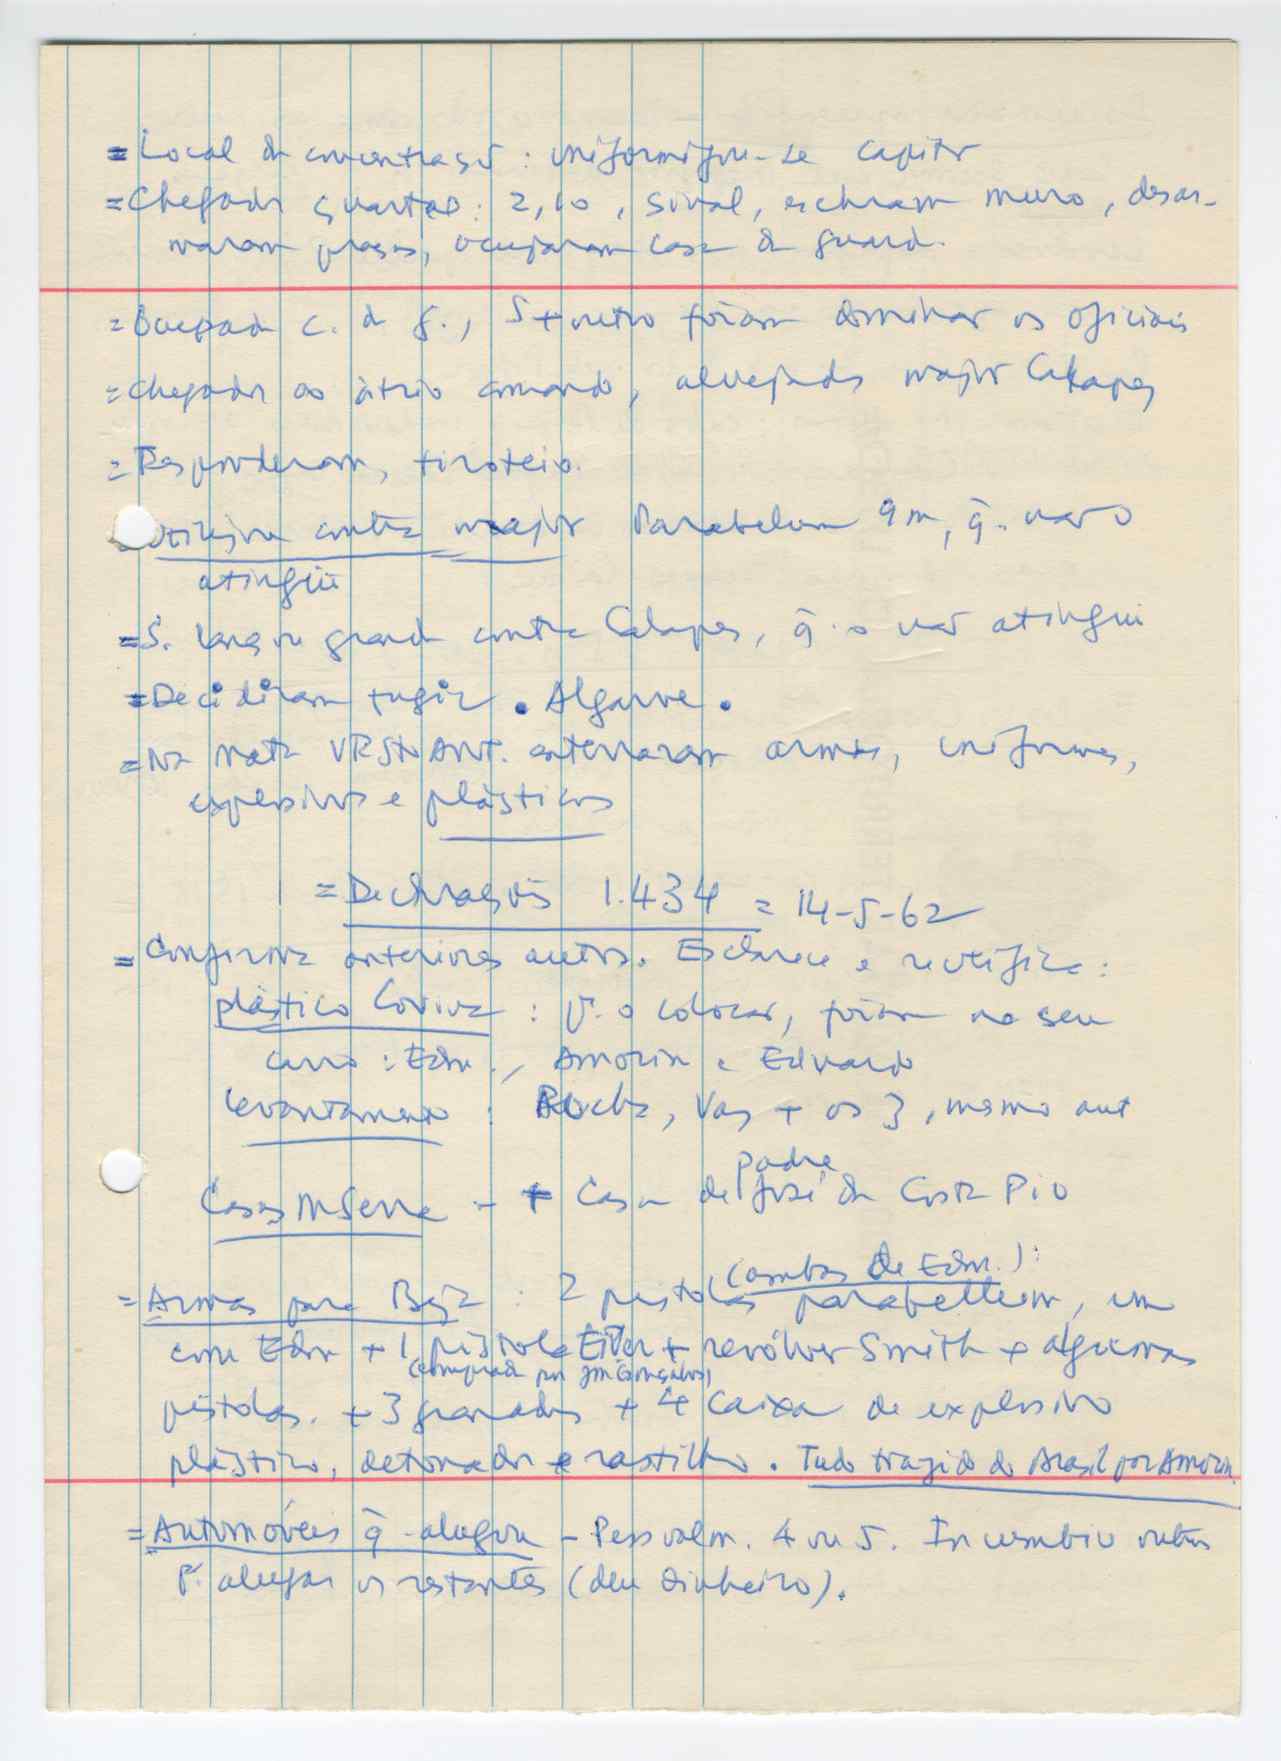 = Local de concentração: uniformizou-se capitão
= Chegada quartel: 2,10, sinal, escalaram muro, desar-
maram praças, ocuparam casa da guarda.
= Ocupada c. da g., S + outro foram dominar os oficiais
= Chegada ao átrio comando, alvejado major Calapez
= Responderam, tiroteio.
= Utilizou contra major Parabelum 9 m, q. não o
atingiu
= S. lançou granada contra Calapez, q. o não atingiu
= Decidiram fugir. Algarve.
= Na Mata VRStoAnt. enterraram armas, uniformes,
explosivos e plásticos
= Declarações 1.434 = 14-5-62
= Confirma anteriores autos. Esclarece e rectifica:
plástico Covina: p. o colocar, foram no seu
carro: Edm., Amorim e Eduardo
levantamento: Rocha, Vaz + os 3, mesmo aut
padre
Casas M Serra - + Casa de José da Costa Pio
(ambas de Edm.):
= Armas para Beja: 2 pistolas parabellum, um
com Edm + 1 pistola + revólver Smith + algumas
(comprada por Gonçalves)
pistolas. + 3 granadas + 4 caixa de explosivo
plástico, detonador e rastilho. Tudo trazido do Brasil por Amorim.
= Automóveis q. alugou - Pessoalm. 4 ou 5. Incumbiu outros
p. alugar os restantes (deu dinheiro).